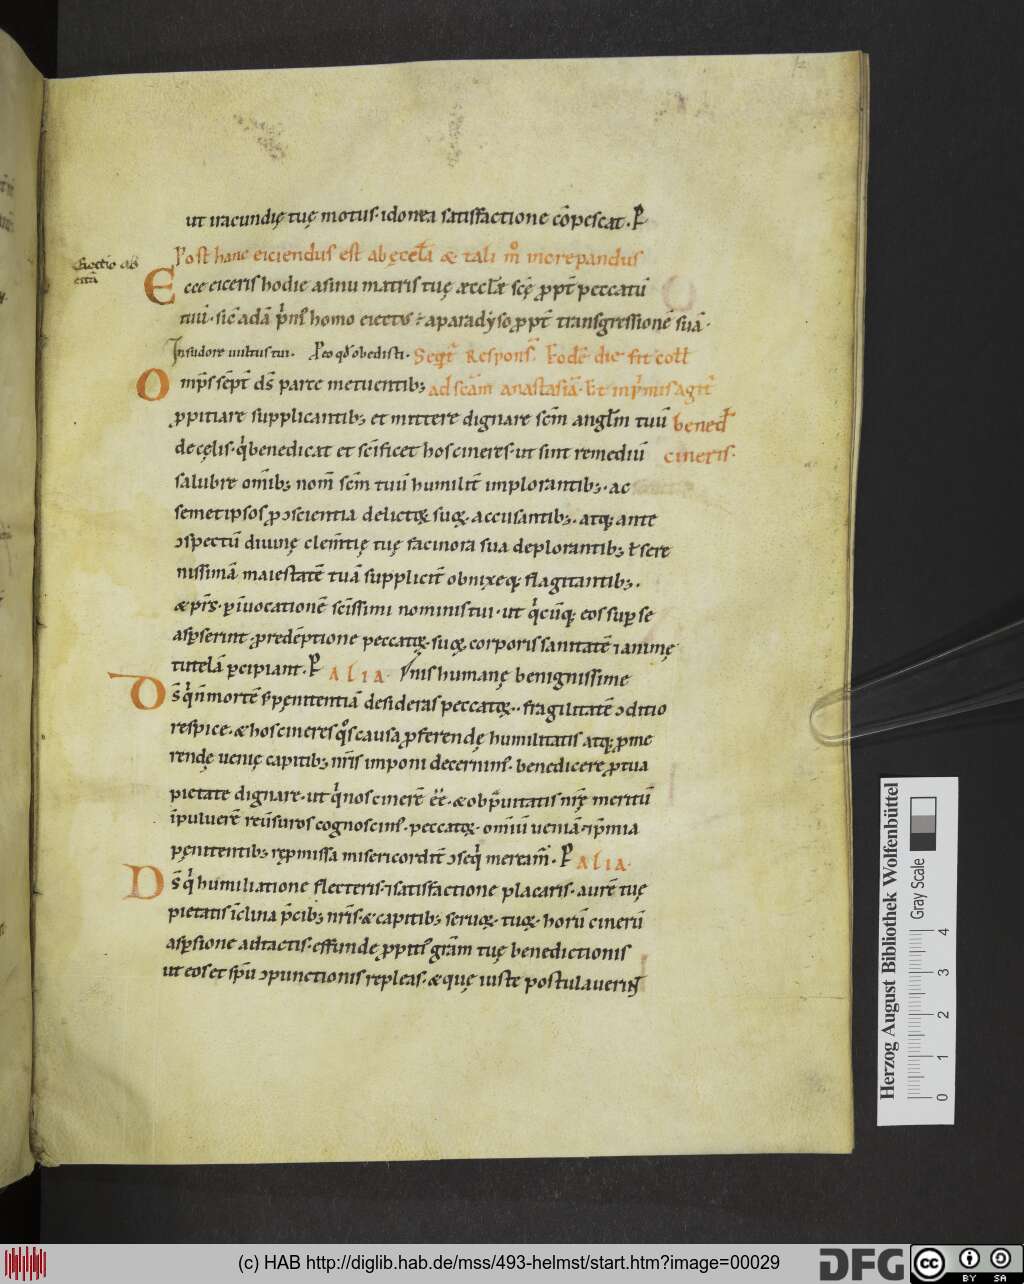 12
ut iracundię tuę motus· idonea satisfactione cōpescat. P
Post hanc eiciendus est ab ęccl̄a & tali m̊ increpandus
Eiectio ab
Ecce eiceris hodie a sinu matris tuę æccl̄æ scę̄ ꝓpt̄ peccatū
tuū· sic̄ adā p̓m; homo eiectus ÷ a paradẏso ꝓpt̄ transgressionē suā·
In sudore uultus tui. P eo qđ obedisti· Seqt̄ Respons̄. Eodē die fit coll̄
Omp̄s sēpt̄ ds̄ parce metuentib; ad scām anastasiā· Et inp̓mis agit̄
ꝓpitiare supplicantib; et mittere dignare scm̄ anglm̄ tuū bened̄
de cęlis· q̓ benedicat et scīficet hos cineres· ut sint remediū cineris·
salubre om̄ib; nom̄ scm̄ tuū humilit̄ implorantib;· ac
semetipsos ꝓ ɔscientia delictoꝝ suoꝝ· accusantib;· atq; ante
ɔspectū diuinę clem̄tię tuę facinora sua deplorantib; ł sere
nissimā maiestatē tuā supplicit̄ obnixeq; flagitantib;.
& p̄rs· p̱ īuocationē scīssimi nominis tui· ut q̓cūq; eos sup̱ se
asp̱serint· ꝓ redēptione peccatoꝝ· suoꝝ corporis sanitatē ⁊ animę
tutelā p̱cipiant. P ALIA. inis humanę benignissime
Ds̄ q̓ n̄ mortē s; pęnitentiā desideras peccatoꝝ· fragilitatē ɔditio
respice· & hos cineres q̊s causa ꝓferendę humilitatis atq; ꝓme
rendę uenię capitib; nr̄is imponi decernim;· benedicere ꝓ tua
pietate dignare· ut q̓ nos cinerē ēē· & ob p̄uitatis nr̄ę meritū
ī puluerē reūsuros cognoscim;· peccatoꝝ· om̄iū ueniā· ⁊ p̄mia
pęnitentib; ręp̱missa misericordit̄ ɔseq̓ meream̄· P ALIA·
Ds̄ q̓ humiliatione flecteris· ⁊ satisfactione placaris· aurē tuę
pietatis īclina p̄cib; nr̄is· & capitib; seruoꝝ· tuoꝝ· horū cinerū
asp̱sione adtactis· effunde ꝓpiti; grām tuę benedictionis
ut eos et spū ɔpunctionis repleas· & quę iuste postulauerint
Herzog August Bibliothek Wolfenbüttel
Gray Scale
0 1 2 3 4
(c) HAB http://diglib.hab.de/mss/493-helmst/start.htm?image=00029
DFG
cc BY SA